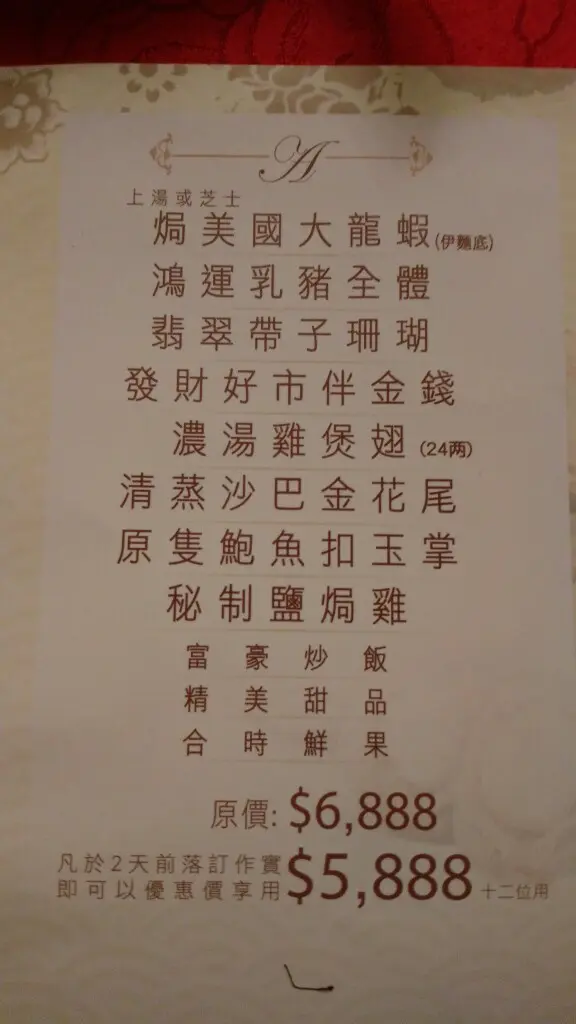 A
上湯或芝士
焗美國大龍蝦(伊麵底)
鴻運乳豬全體
翡翠帶子珊瑚
發財好市伴金錢
濃湯雞煲翅(24两)
清蒸沙巴金花尾
原隻鮑魚扣玉掌
秘制鹽焗雞
富豪炒飯
精美甜品
合時鮮果
原價: $6,888
凡於2天前落訂作實
即可以優惠價享用 $5,888 十二位用